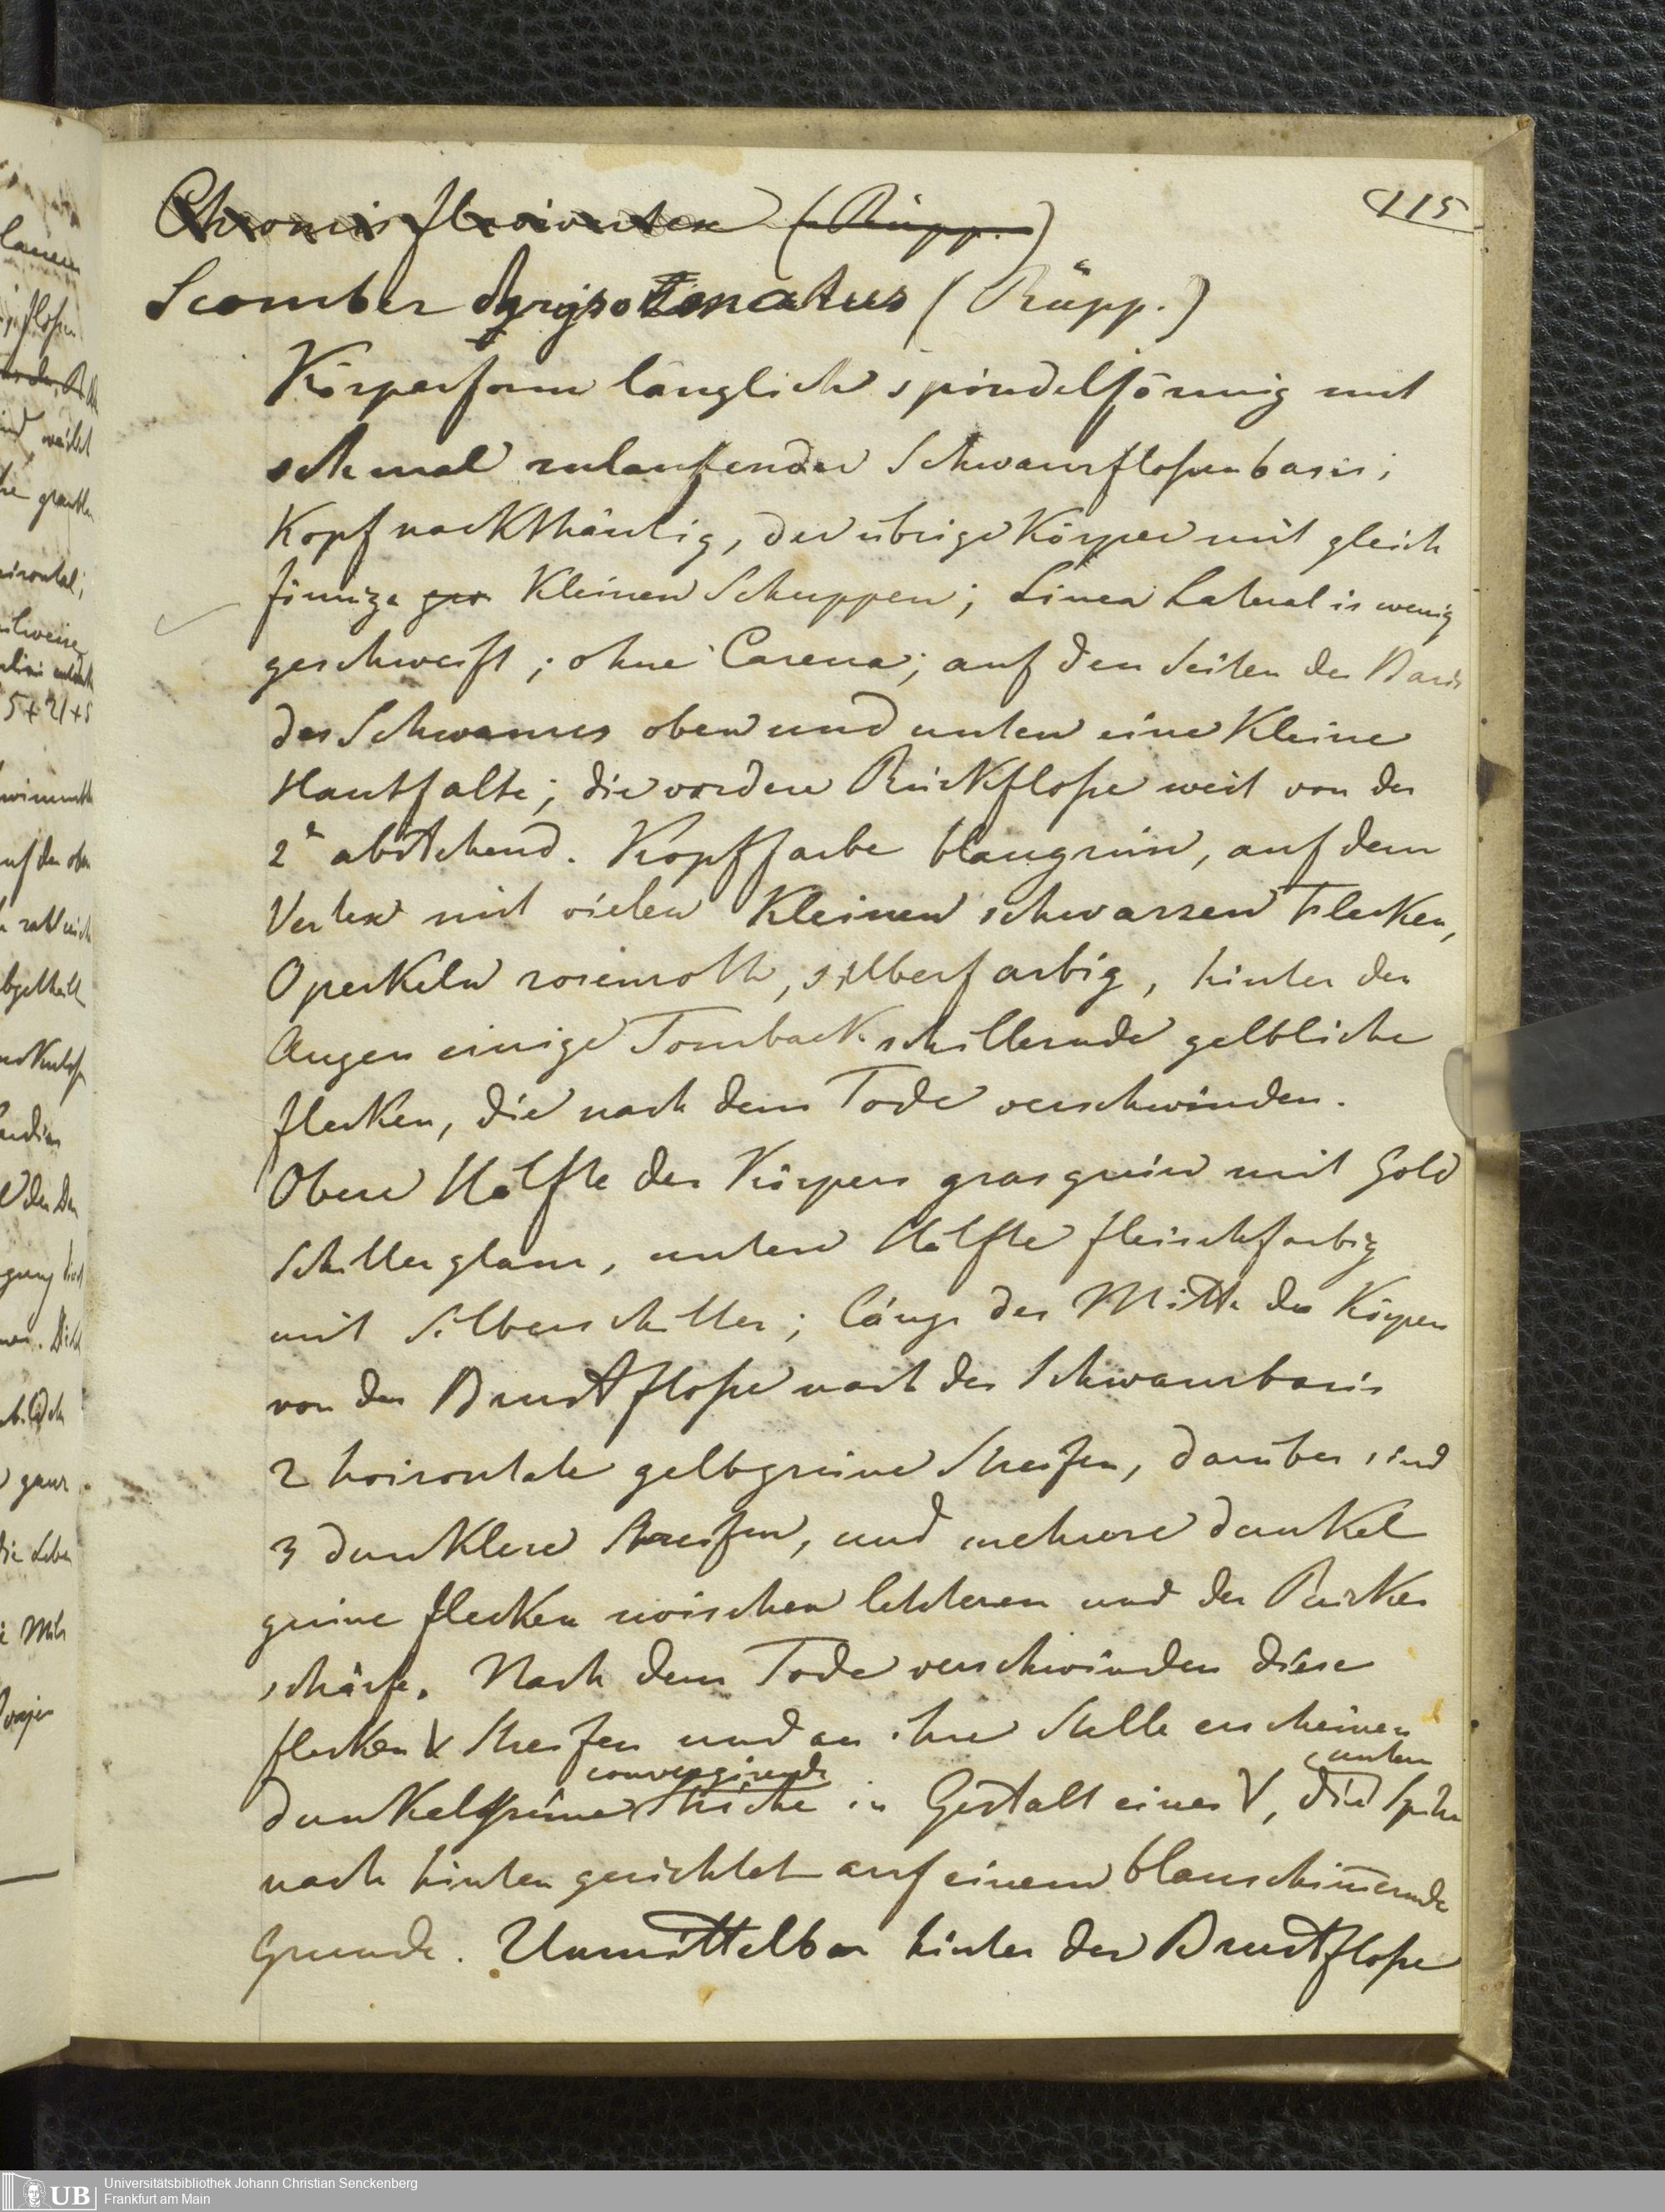 115
Chromis flaviventer (Rüpp.)
Scomber (Rüpp.)
Körperform länglich spindelförmig mit
schmal zulaufender Schwanzfloßenbasis;
Kopf nackthäutig, der übrige Körper mit gleich
förmige gro kleinen Schuppen; Linea Lateralis wenig
geschweift; ohne Carena; auf den Seiten der Basis
des Schwanzes oben und unten eine kleine
Hautfalte; die vordere Rückfloße weit von der
2n abstehend. Kopffarbe blaugrün, auf dem
Vertex mit vielen kleinen schwarzen Flecken,
Operkeln rosenroth, silberfarbig, hinter den
Augen einige Tomback schillernde gelbliche
flecken, die nach dem Tode verschwinden.
Obere Hälfte des Körpers grasgrün mit Gold
Schillerglanz, untere Hälfte fleischfarbig
mit Silberschiller; längs der Mitte des Körpers
von der Brustfloße nach der Schwanzbasis
2 horizontale gelbgrüne Streifen, darüber sind
3 dunklere Streifen, und mehrere dunkel
grüne flecken zwischen letzteren und der Rücken
schärfe. Nach dem Tode verschwinden diese
flecken & Streifen und an ihre Stelle erscheinen
convergirende unten
dunkelgrüne Striche in Gestalt eines V, die Spitze
nach hinten gerichtet auf einem blauschim̄ernde
Grunde. Unmittelbar hinter der Brustfloße
5+21+5
UB Universitätsbibliothek Johann Christian Senckenberg
Frankfurt am Main